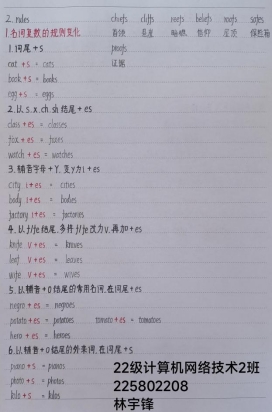 2. rules chiefs cliffs reefs beliefs roofs safes
1.名词复数的规则变化 首领 悬崖 暗礁 信仰 屋顶 保险箱
1. 词尾+s proofs
cat +s = cats 证据
book +s = books
egg +s = eggs
2. 以 s. x. ch. sh 结尾 + es
class + es = classes
fox + es = foxes
watch + es = watches
3. 辅音字母 + Y. 变y为i + es
city i+es = cities
body i+es = bodies
factory i+es = factories
4. 以 f/fe 结尾. 多将 f/fe 改为v. 再加 + es
knife v+es = knives
leaf v+es = leaves
wife v+es = wives
5. 以辅音+o结尾的常用名词. 在词尾+es
negro + es = negroes
potato + es = potatoes tomato + es = tomatoes
hero + es = heroes
6. 以辅音+o结尾的外来词. 在词尾+s
piano +s = pianos
photo +s = photos
kilo +s = kilos
22级计算机网络技术2班
225802208
林宇锋